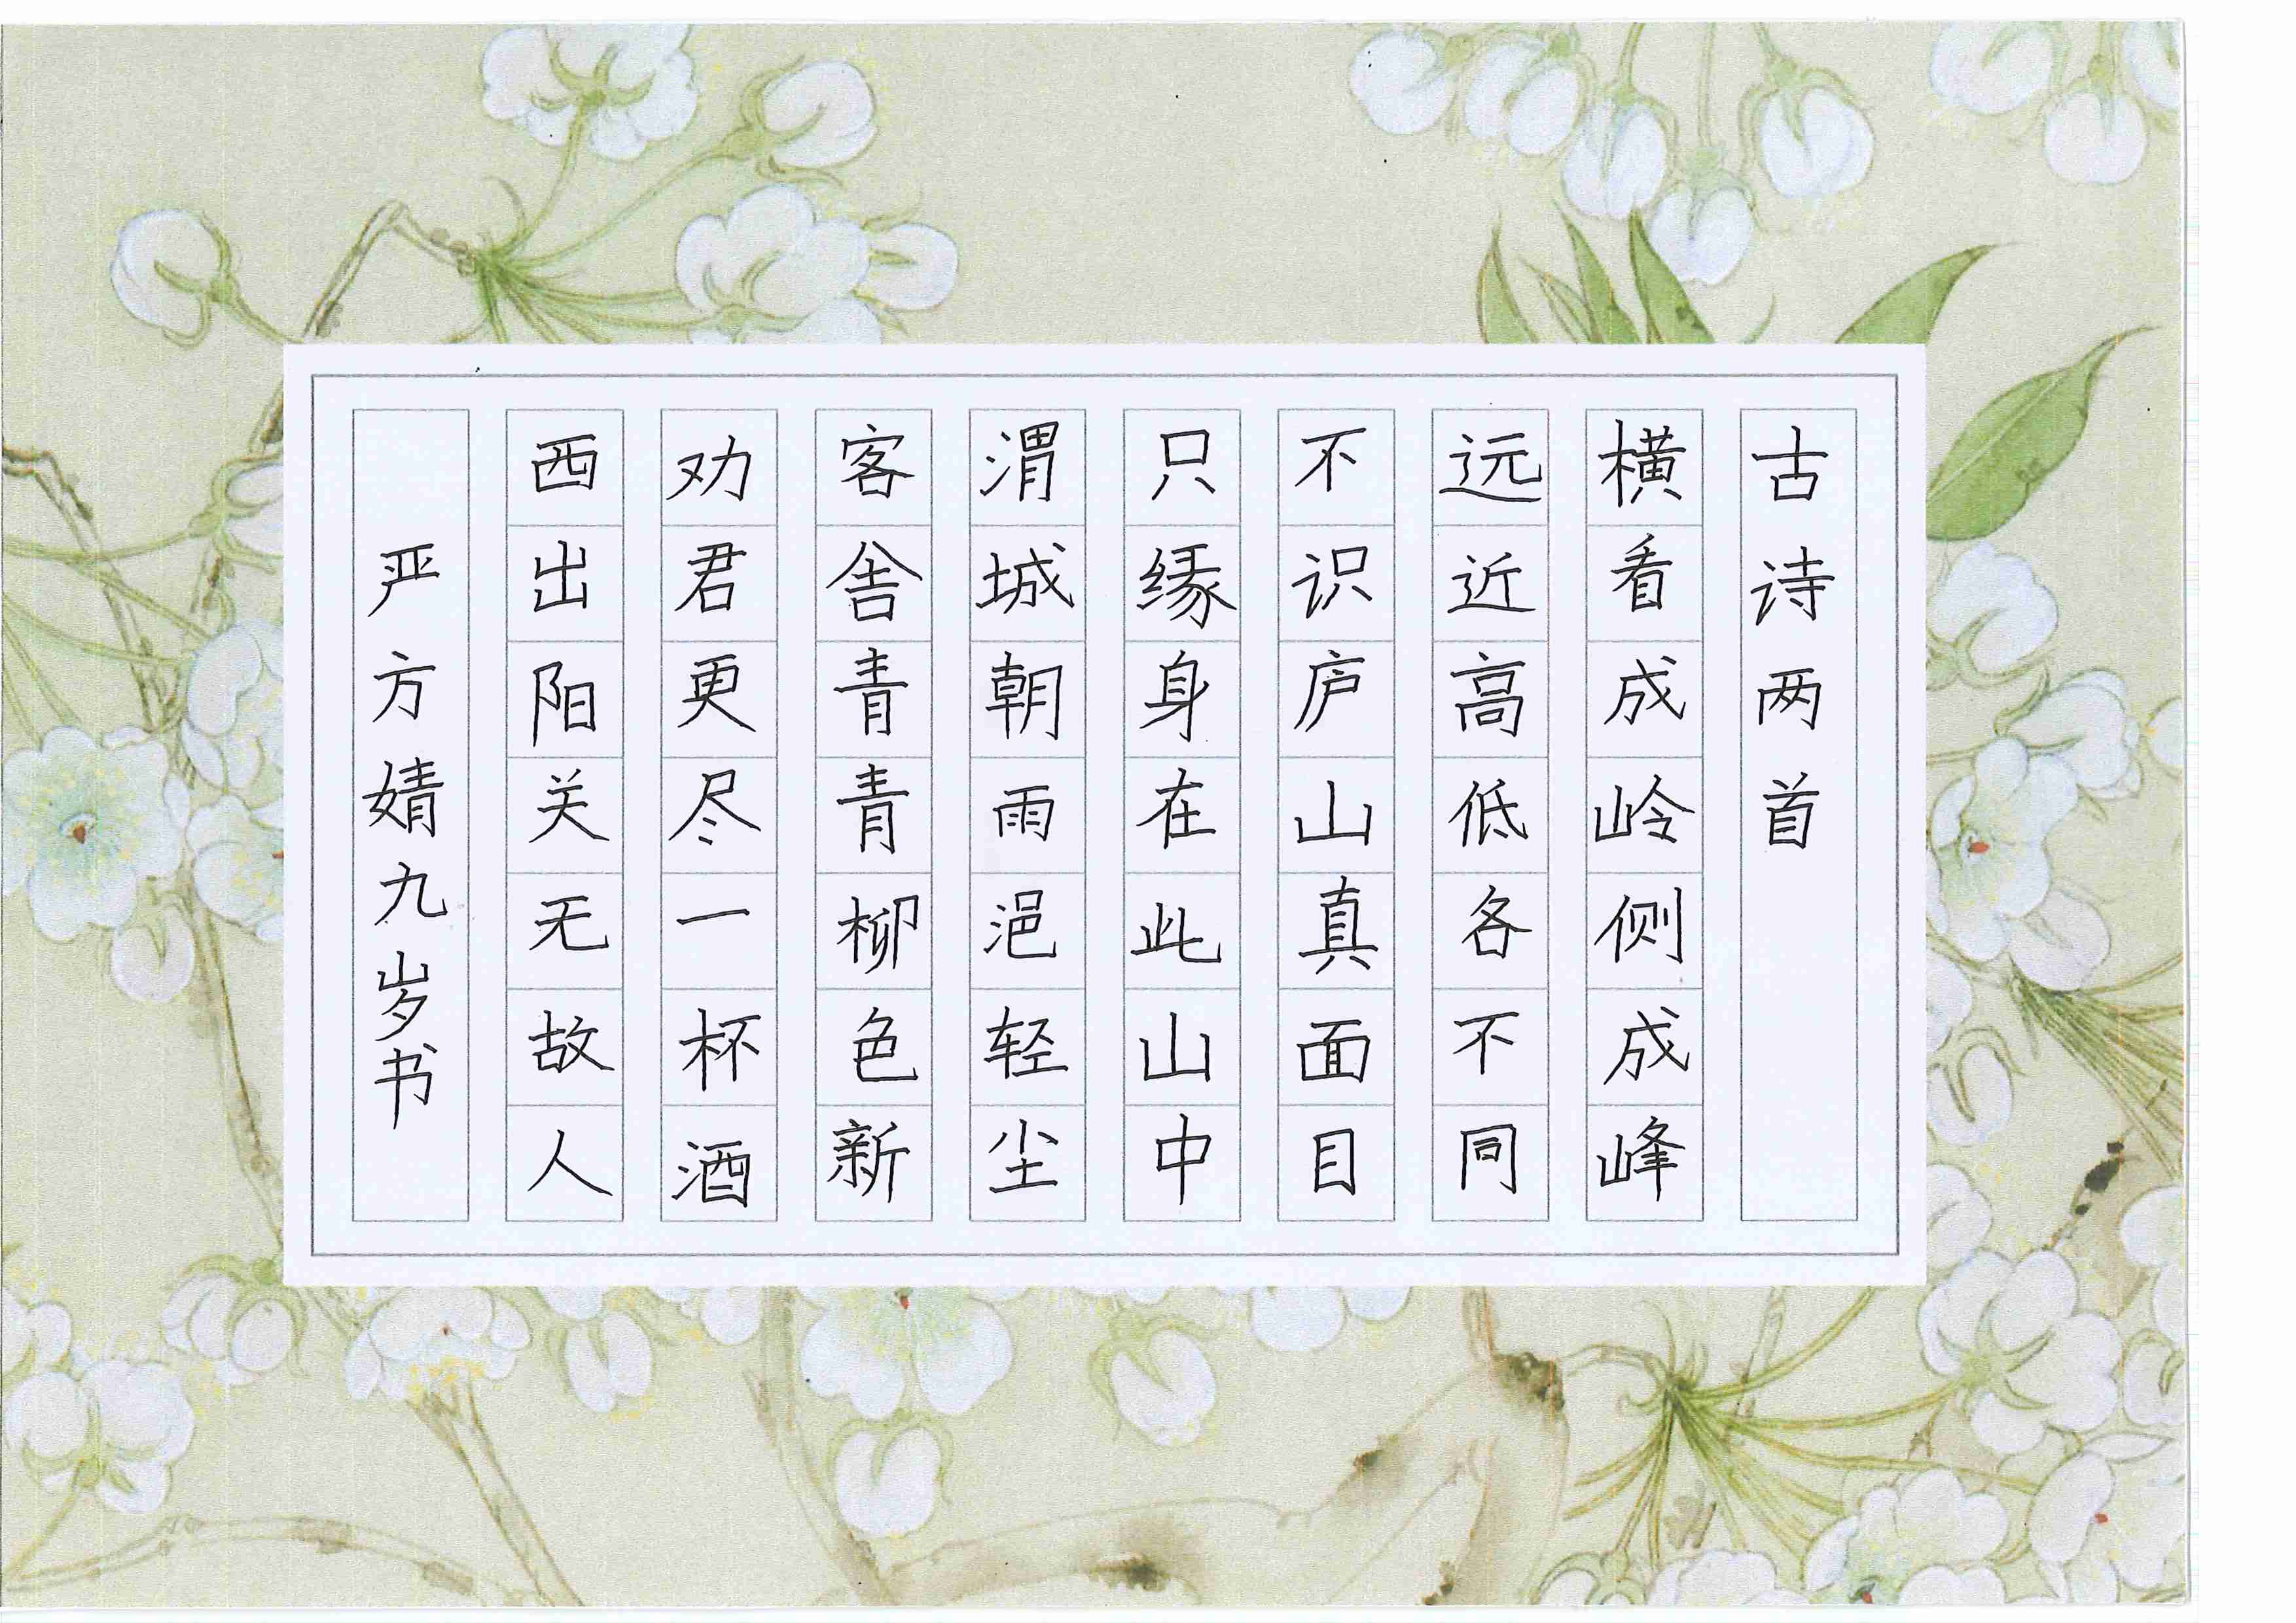 古诗两首
横看成岭侧成峰
远近高低各不同
不识庐山真面目
只缘身在此山中
渭城朝雨浥轻尘
客舍青青柳色新
劝君更尽一杯酒
西出阳关无故人
严方婧九岁书